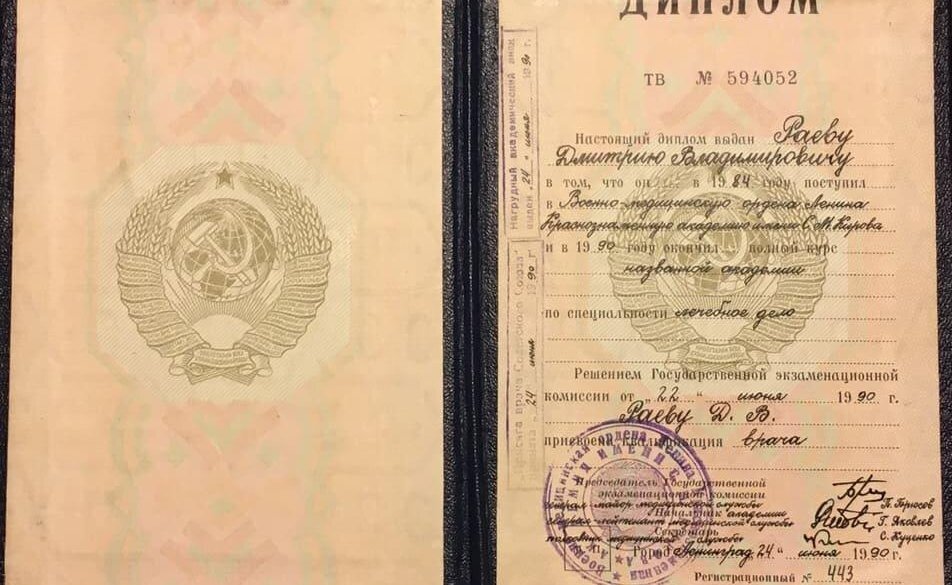 ДИПЛОМ
ТВ № 594052
Настоящий диплом выдан Раеву
Дмитрию Владимировичу
в том, что он в 1984 году поступил
в Военно-медицинскую ордена Ленина
Краснознаменную академию имени С. М. Кирова
и в 1990 году окончил полный курс
названной академии
по специальности лечебное дело
Решением Государственной экзаменационной
комиссии от „22“ июня 1990 г.
Раеву Д. В.
присвоена квалификация врача
Председатель Государственной
экзаменационной комиссии
генерал-майор медицинской службы
П. Брюсов
Начальник академии
генерал-лейтенант медицинской службы
Г. Яковлев
Секретарь
полковник медицинской службы
С. Куценко
Город Ленинград 24 июня 1990 г.
Регистрационный № 443
Нагрудный академический знак
выдан „24“ июня 1990 г.
врача Советского Союза
24 июня 1990 г.